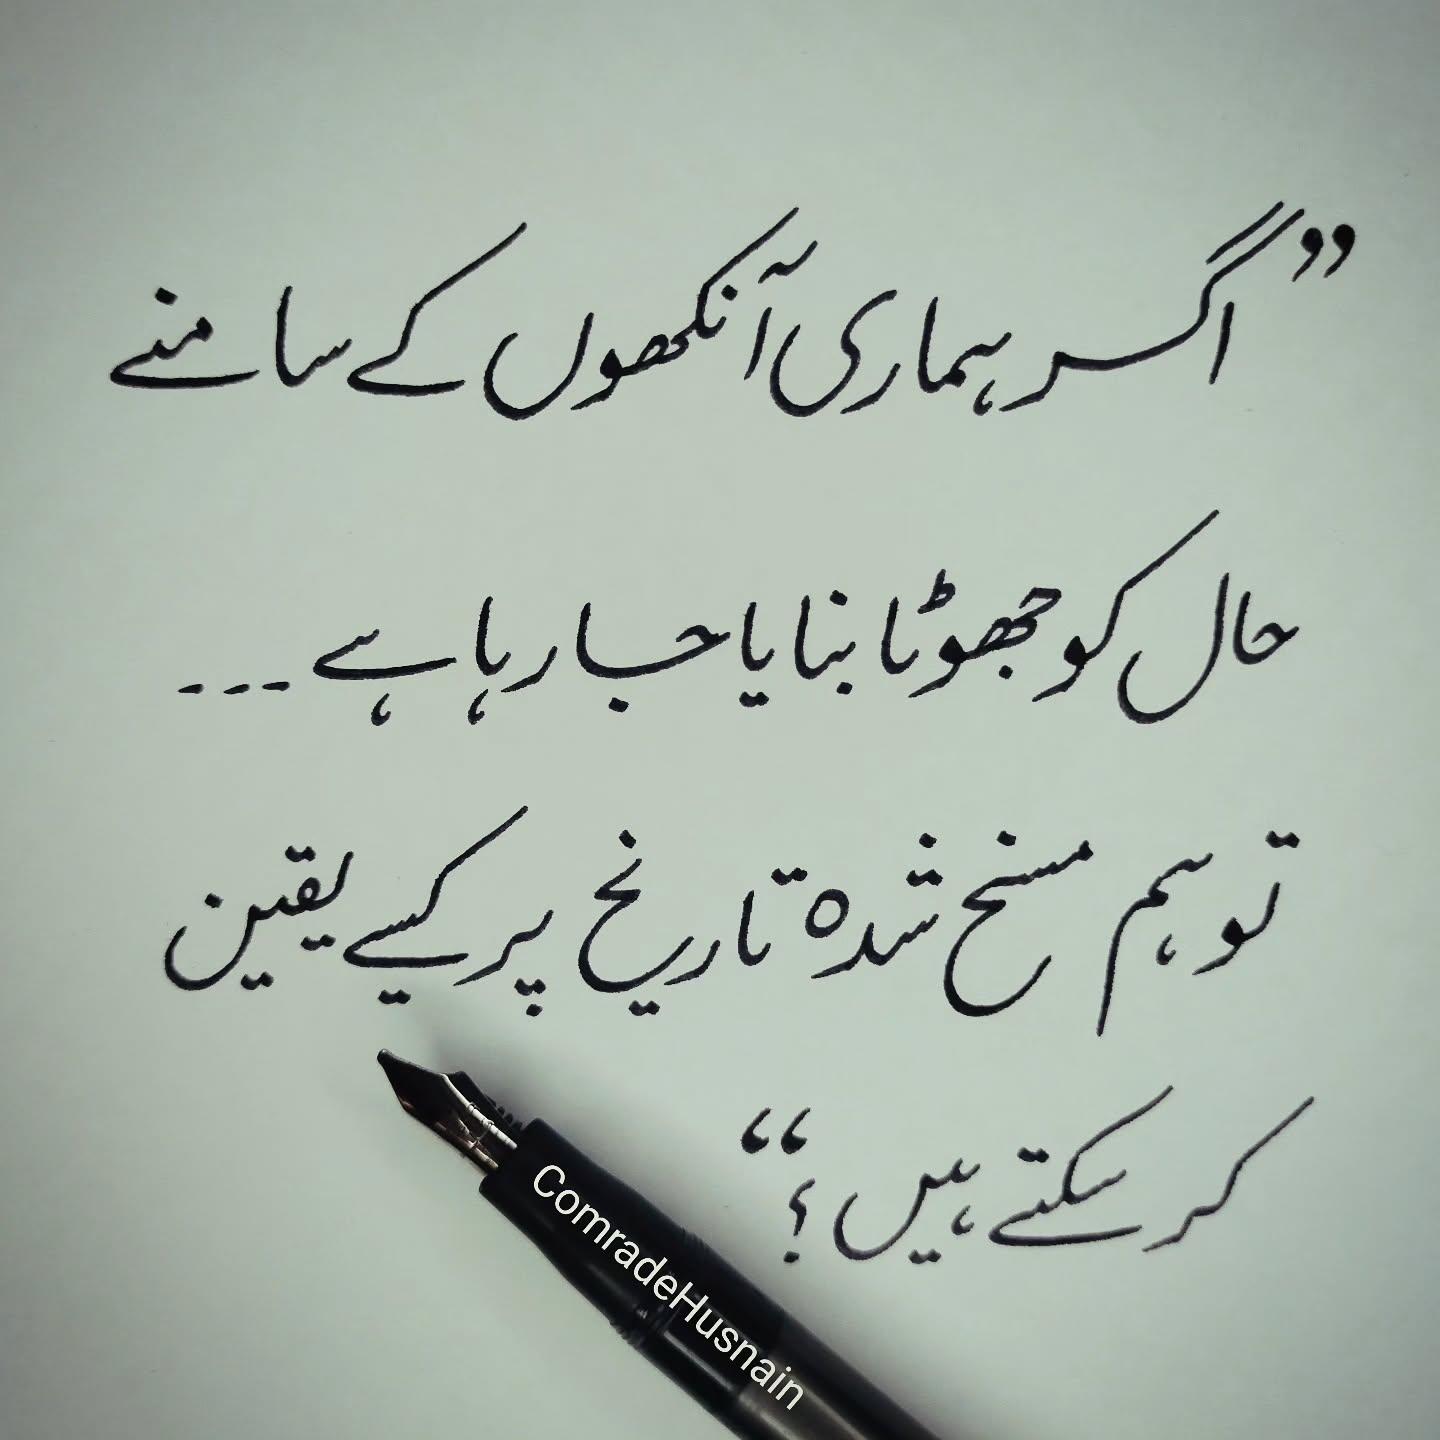 ”اگر ہماری آنکھوں کے سامنے
حال کو جھوٹا بنایا جا رہا ہے ---
تو ہم مسخ شدہ تاریخ پر کیسے یقین
کر سکتے ہیں؟“
ComradeHusnain